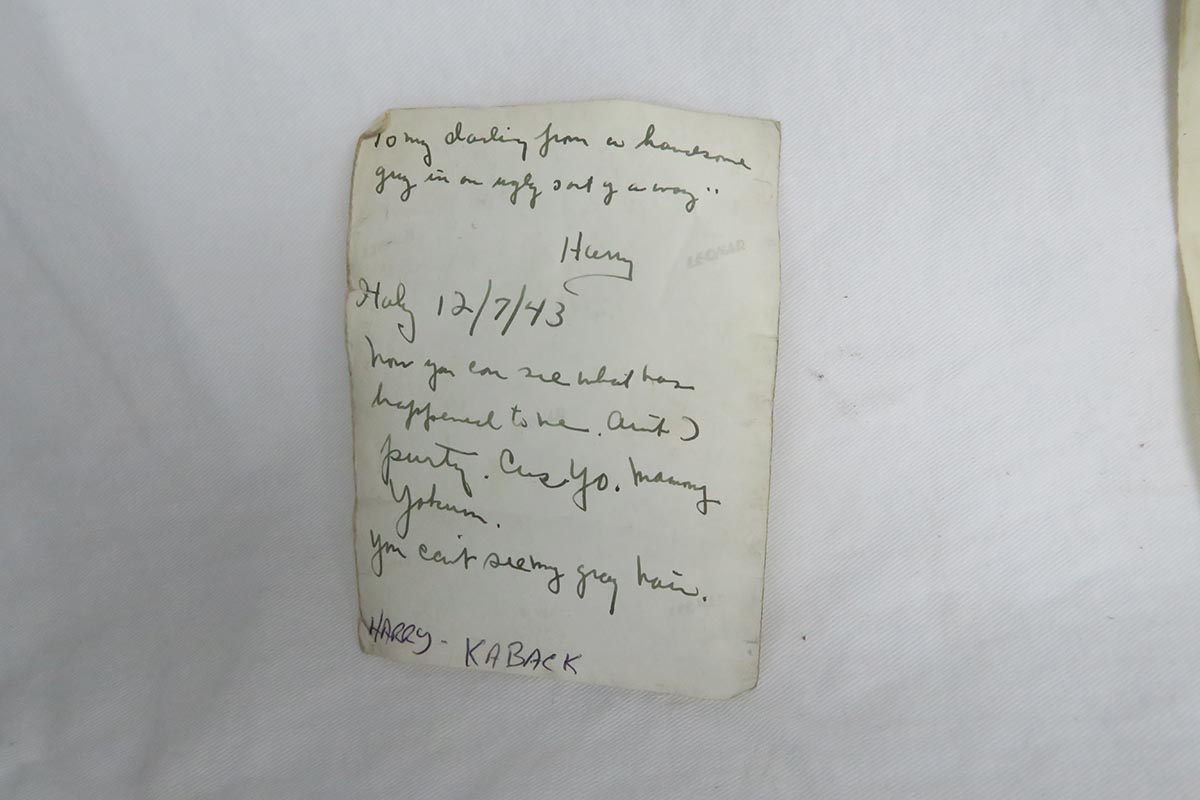 To my darling from a handsome
guy in an ugly sort of a way"
Harry
LEONAR
Italy 12/7/43
Now you can see what has
happened to me. Aint I
purty. Cus Yo. Mammy
Yokum.
You can't see my gray hair.
HARRY - KABACK